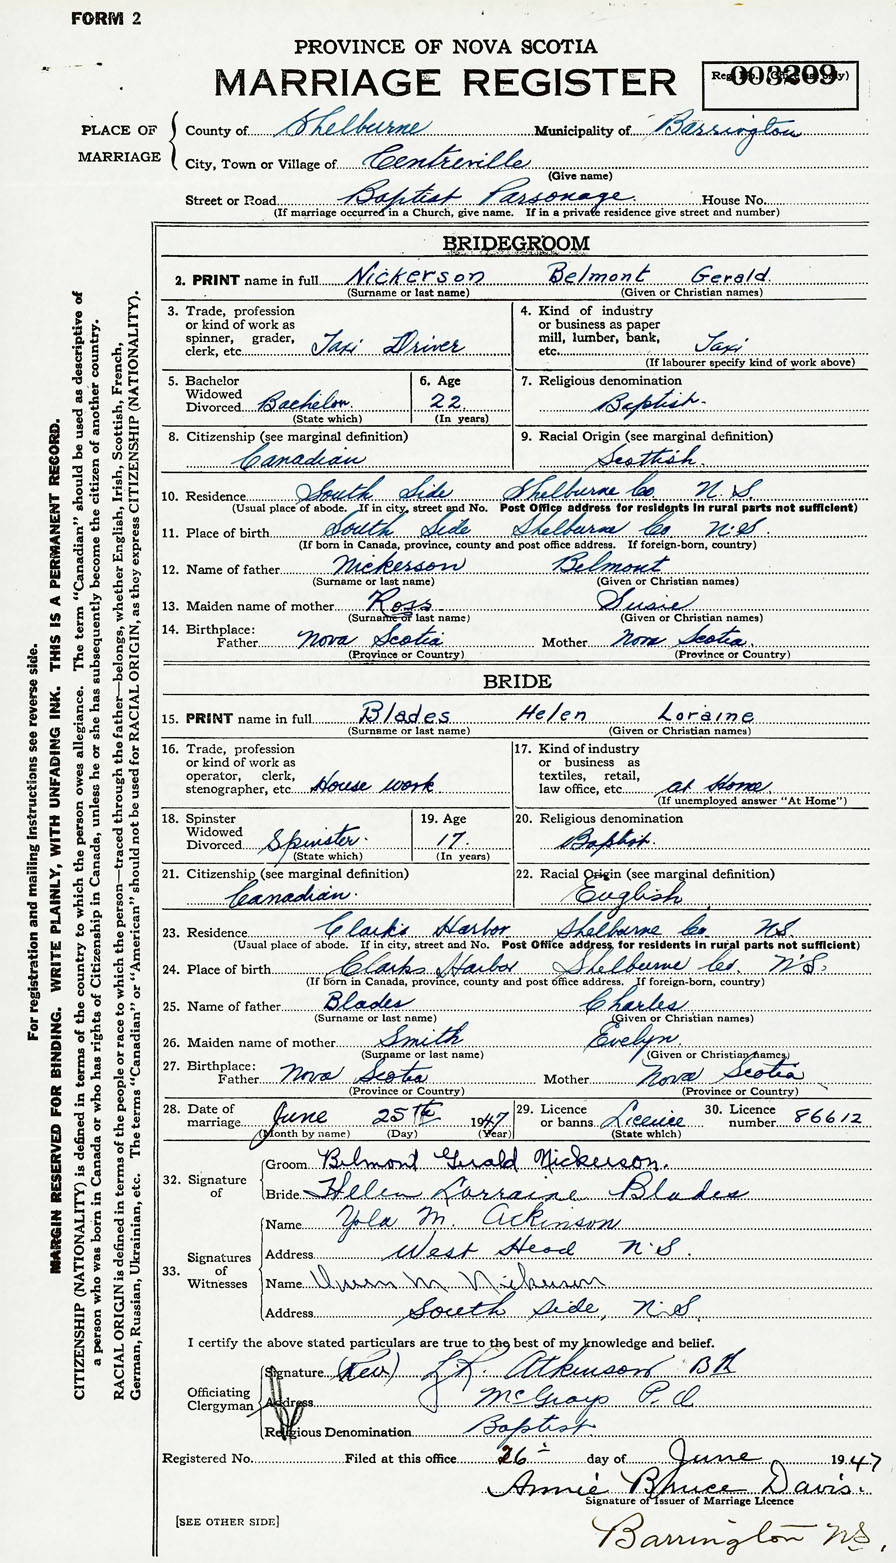 FORM 2
PROVINCE OF NOVA SCOTIA
MARRIAGE REGISTER
003209
PLACE OF MARRIAGE
County of Shelburne Municipality of Barrington
City, Town or Village of Centreville
(Give name)
Street or Road Baptist Parsonage. House No.
(If marriage occurred in a Church, give name. If in a private residence give street and number)
BRIDEGROOM
2. PRINT name in full Nickerson Belmont Gerald.
(Surname or last name) (Given or Christian names)
3. Trade, profession or kind of work as spinner, grader, clerk, etc. Taxi Driver
4. Kind of industry or business as paper mill, lumber, bank, etc. Taxi
(If labourer specify kind of work above)
5. Bachelor Widowed Divorced Bachelor.
(State which)
6. Age 22.
(In years)
7. Religious denomination Baptist.
8. Citizenship (see marginal definition) Canadian
9. Racial Origin (see marginal definition) Scottish.
10. Residence South Side Shelburne Co. N.S.
(Usual place of abode. If in city, street and No. Post Office address for residents in rural parts not sufficient)
11. Place of birth South Side Shelburne Co. N.S.
(If born in Canada, province, county and post office address. If foreign-born, country)
12. Name of father Nickerson Belmont
(Surname or last name) (Given or Christian names)
13. Maiden name of mother Ross Susie
(Surname or last name) (Given or Christian names)
14. Birthplace: Father Nova Scotia Mother Nova Scotia.
(Province or Country) (Province or Country)
BRIDE
15. PRINT name in full Blades Helen Loraine
(Surname or last name) (Given or Christian names)
16. Trade, profession or kind of work as operator, clerk, stenographer, etc. House work
17. Kind of industry or business as textiles, retail, law office, etc. at Home.
(If unemployed answer "At Home")
18. Spinster Widowed Divorced Spinster.
(State which)
19. Age 17.
(In years)
20. Religious denomination Baptist.
21. Citizenship (see marginal definition) Canadian.
22. Racial Origin (see marginal definition) English
23. Residence Clark's Harbor Shelburne Co. N.S.
(Usual place of abode. If in city, street and No. Post Office address for residents in rural parts not sufficient)
24. Place of birth Clarks Harbor Shelburne Co. N.S.
(If born in Canada, province, county and post office address. If foreign-born, country)
25. Name of father Blades Charles
(Surname or last name) (Given or Christian names)
26. Maiden name of mother Smith Evelyn.
(Surname or last name) (Given or Christian names)
27. Birthplace: Father Nova Scotia Mother Nova Scotia
(Province or Country) (Province or Country)
28. Date of marriage June 25th 1947
(Month by name) (Day) (Year)
29. Licence or banns Licence
(State which)
30. Licence number 86612
32. Signature of
Groom Belmont Gerald Nickerson.
Bride Helen Lorraine Blades
33. Signatures of Witnesses
Name Yola M. Ackinson
Address West Head N.S.
Name M Nickerson
Address South Side, N.S.
I certify the above stated particulars are true to the best of my knowledge and belief.
Officiating Clergyman
Signature (Rev.) L.R. Atkinson
Address McGrays P.O
Religious Denomination Baptist.
Registered No. Filed at this office 26 day of June 1947
Annie Bruce Davis.
Signature of Issuer of Marriage Licence
Barrington NS.
[SEE OTHER SIDE]
For registration and mailing instructions see reverse side.
MARGIN RESERVED FOR BINDING. WRITE PLAINLY, WITH UNFADING INK. THIS IS A PERMANENT RECORD.
CITIZENSHIP (NATIONALITY) is defined in terms of the country to which the person owes allegiance. The term "Canadian" should be used as descriptive of
a person who was born in Canada or who has rights of Citizenship in Canada, unless he or she has subsequently become the citizen of another country.
RACIAL ORIGIN is defined in terms of the people or race to which the person—traced through the father—belongs, whether English, Irish, Scottish, French,
German, Russian, Ukrainian, etc. The terms "Canadian" or "American" should not be used for RACIAL ORIGIN, as they express CITIZENSHIP (NATIONALITY).